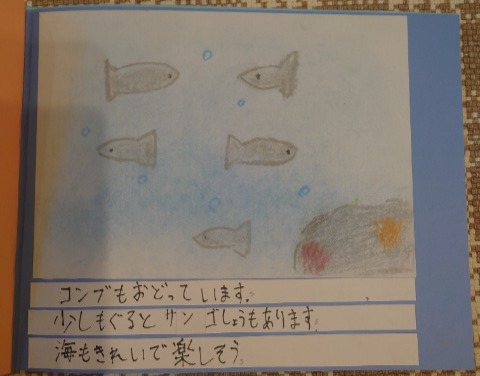 コンブもおどっています。
少しもぐるとサンゴしょうもあります。
海もきれいで楽しそう。